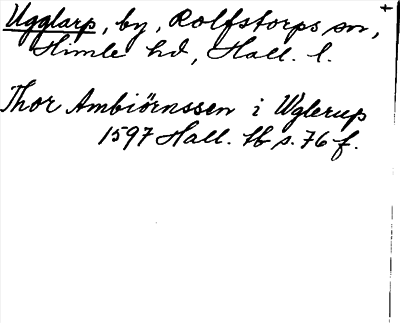 Ugglarp, by, Rolfstorps sn,
Himle hd, Hall. l.
Thor Ambiörnssen i Uglerup
1597 Hall. lb s. 76 f.